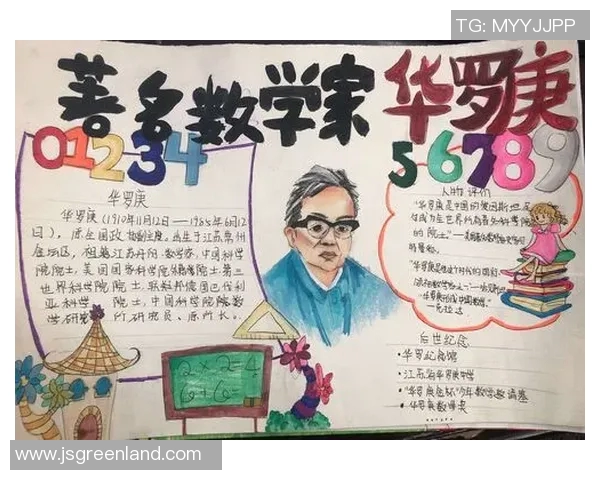 TG: MYYJJPP
著名数学家 华罗庚
01234
56789
华罗庚
华罗庚(1910年11月12日——1985年6月12
日),原全国政协副主席。出生于江苏常州
金坛区,祖籍江苏丹阳。数学家,中国科学
院院士,美国国家科学院外籍院士第三
世界科学院院士,联邦德国巴伐利
亚科学院 院士,中国科学院数
学研究所研究员、原所长。
人物评价
"华罗庚是中国的爱因斯坦,足
够成为全世界所有著名科学院
的院士。"
后世纪念
·华罗庚纪念馆
·江苏省华罗庚中学
·"华罗庚金杯"少年数学邀请赛
·华罗庚数学奖
2×2=4
6+6=
www.jsgreenland.com